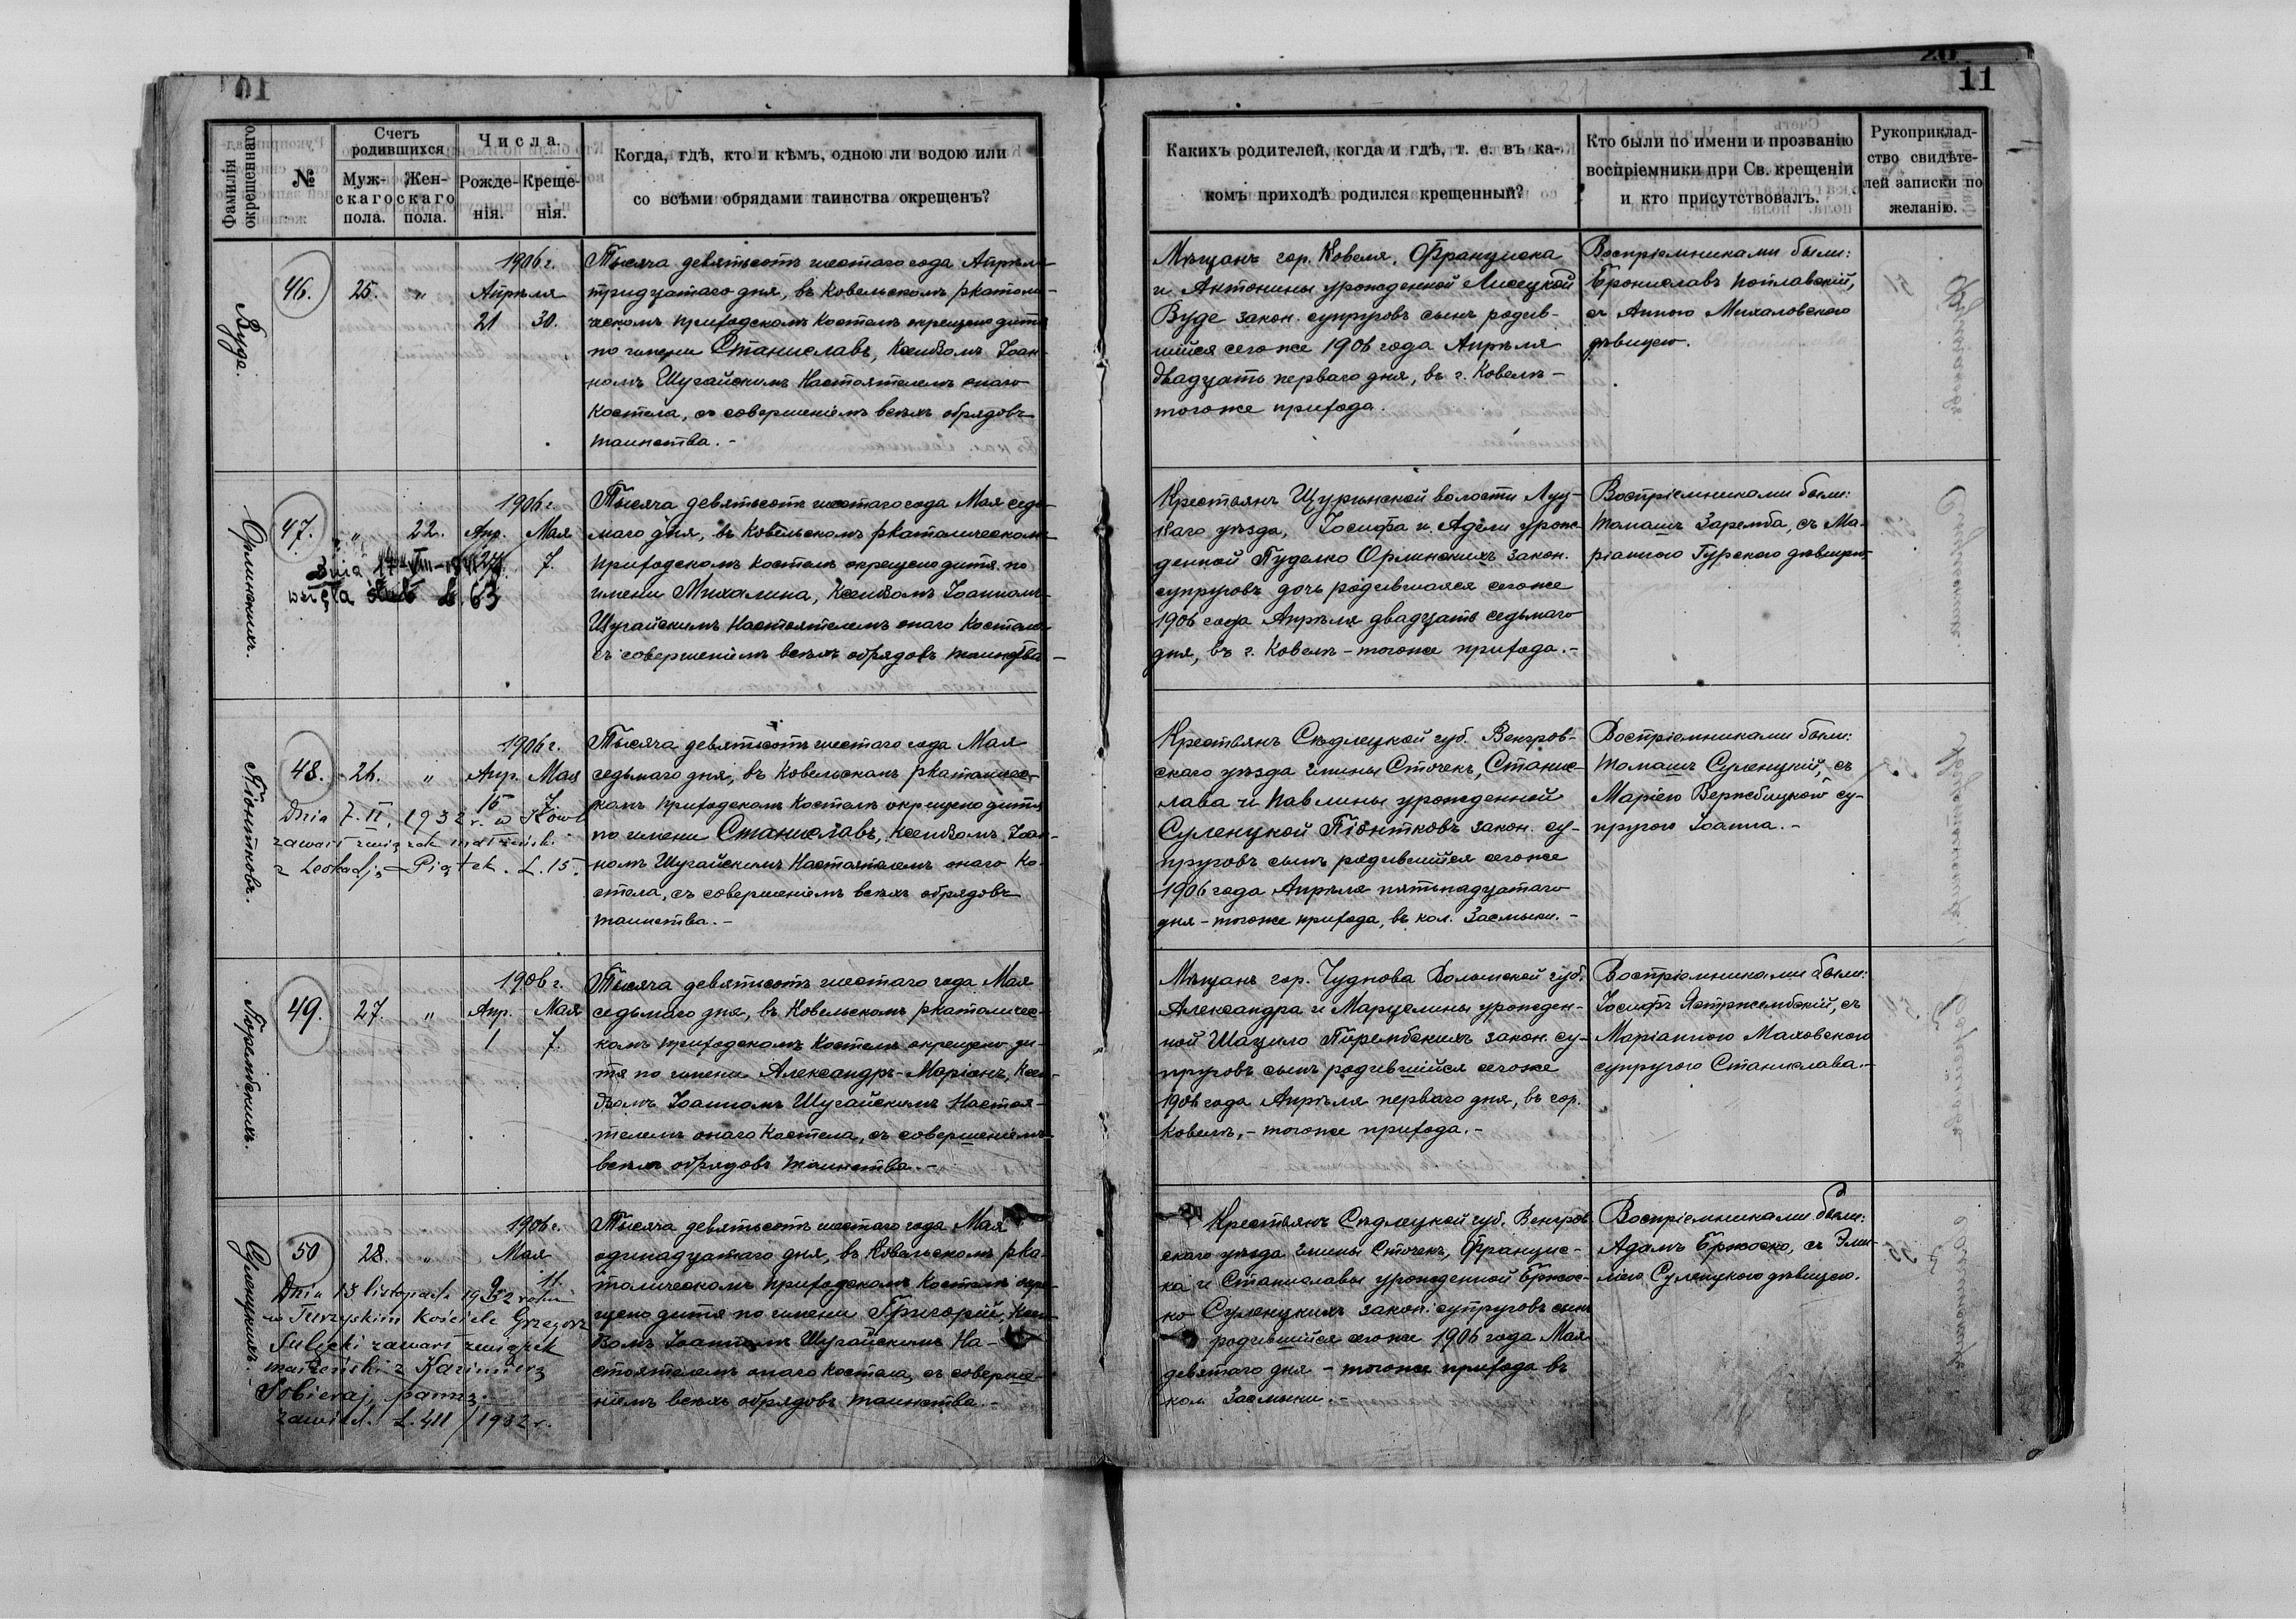 11
Фамилія
окрещеннаго
№
Счетъ
родившихся
Муж-
скаго
пола.
Жен-
скаго
пола.
Числа.
Рожде-
нія.
Креще-
нія.
Когда, гдѣ, кто и кѣмъ, одною ли водою или
со всѣми обрядами таинства окрещенъ?
Какихъ родителей, когда и гдѣ, т. е. въ ка-
комъ приходѣ родился крещенный?
Кто были по имени и прозванію
воспріемники при Св. крещеніи
и кто присутствовалъ.
Рукоприклад-
ство свидѣте-
лей записки по
желанію.
Вуде.
46.
25.
"
1906 г.
Апрѣля
21 30.
Тысяча девятьсотъ шестаго года Апрѣля
тридцатаго дня, въ Ковельскомъ р католи-
ческомъ приходскомъ костелѣ окрещено дитя
по имени Станиславъ, Ксендзомъ Іоан-
номъ Шугайскимъ Настоятелемъ онаго
костела, съ совершеніемъ всѣхъ обрядовъ
таинства. -
Мѣщанъ гор. Ковеля, Франциска
и Антонины урожденной Лисецкой
Вуде закон. супруговъ сынъ родив-
шійся сегоже 1906 года Апрѣля
двадцать перваго дня, въ г. Ковелѣ -
тогоже прихода.
Воспріемниками были:
Брониславъ Поплавскій,
съ Анною Михаловскою
дѣвицею.
Орлинскихъ.
47.
"
22.
1906 г.
Апр. Мая
7.
Dnia 17-VIII-1924
wzięła ślub L. 63
Тысяча девятьсотъ шестаго года Мая седь-
маго дня, въ Ковельскомъ р католическомъ
приходскомъ костелѣ окрещено дитя по
имени Михалина, Ксендзомъ Іоанномъ
Шугайскимъ Настоятелемъ онаго костела
съ совершеніемъ всѣхъ обрядовъ таинства -
Крестьянъ Щуринской волости Луц-
каго уѣзда, Іосифа и Адели урож-
денной Пуделко Орлинскихъ закон.
супруговъ дочь родившаяся сегоже
1906 года Апрѣля двадцать седьмаго
дня, въ г. Ковелѣ - тогоже прихода. -
Воспріемниками были:
Томашъ Заремба, съ Ма-
ріанною Гурскою дѣвицею
Піонтковъ.
48.
26.
"
1906 г.
Апр. Мая
15 7.
Dnia 7. II. 1932 r. w Kowlu
zawarł związek małżeński
z Leokadją Piątek. L. 15.
Тысяча девятьсотъ шестаго года Мая
седьмаго дня, въ Ковельскомъ р католичес-
комъ приходскомъ костелѣ окрещено дитя
по имени Станиславъ, Ксендзомъ Іоан-
номъ Шугайскимъ Настоятелемъ онаго ко-
стела, съ совершеніемъ всѣхъ обрядовъ
таинства. -
Крестьянъ Сѣдлецкой губ. Венгров-
скаго уѣзда гмины Сточекъ, Станис-
лава и Павлины урожденной
Суленцкой Піонтковъ закон. су-
пруговъ сынъ родившійся сегоже
1906 года Апрѣля пятьнадцатаго
дня - тогоже прихода, въ кол. Засмыки. -
Воспріемниками были:
Томашъ Суленцкій, съ
Маріею Вержбицкою су-
пругою Іоанна. -
Порембскихъ.
49.
27.
"
1906 г.
Апр. Мая
1 7.
Тысяча девятьсотъ шестаго года Мая
седьмаго дня, въ Ковельскомъ р католичес-
комъ приходскомъ костелѣ окрещено ди-
тя по имени Александръ-Маріанъ, Ксен-
дзомъ Іоанномъ Шугайскимъ Настоя-
телемъ онаго костела, съ совершеніемъ
всѣхъ обрядовъ таинства. -
Мѣщанъ гор. Чуднова Волынской губ.
Александра и Марцелины урожден-
ной Шацило Порембскихъ закон. су-
пруговъ сынъ родившійся сегоже
1906 года Апрѣля перваго дня, въ гор.
Ковелѣ, - тогоже прихода. -
Воспріемниками были:
Іосифъ Ястржембскій, съ
Маріанною Маховскою
супругою Станислава. -
Суленцкихъ.
50
28.
"
1906 г.
Мая
9 11.
Dnia 13 listopada 1932 roku
w Turzyskim Kościele Grzegorz
Sulęcki zawarł związek
małżeński z Kazimierą
Sobieraj, panną.
L. 411/1932 r.
Тысяча девятьсотъ шестаго года Мая
одинадцатаго дня, въ Ковельскомъ р ка-
толическомъ приходскомъ костелѣ окре-
щено дитя по имени Григорій, Ксен-
дзомъ Іоанномъ Шугайскимъ На-
стоятелемъ онаго костела, съ соверше-
ніемъ всѣхъ обрядовъ таинства. -
Крестьянъ Сѣдлецкой губ. Венгров-
скаго уѣзда гмины Сточекъ, Францис-
ка и Станиславы урожденной Бржос-
ко Суленцкихъ закон. супруговъ сынъ
родившійся сегоже 1906 года Мая
девятаго дня - тогоже прихода въ
кол. Засмыки. -
Воспріемниками были:
Адамъ Бржоско, съ Эми-
ліею Суленцкою дѣвицею.